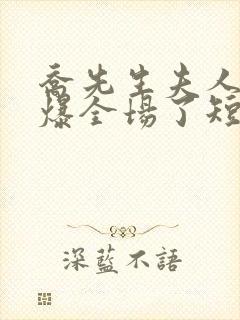 喬先生夫人
爆全場了短
深藍不語